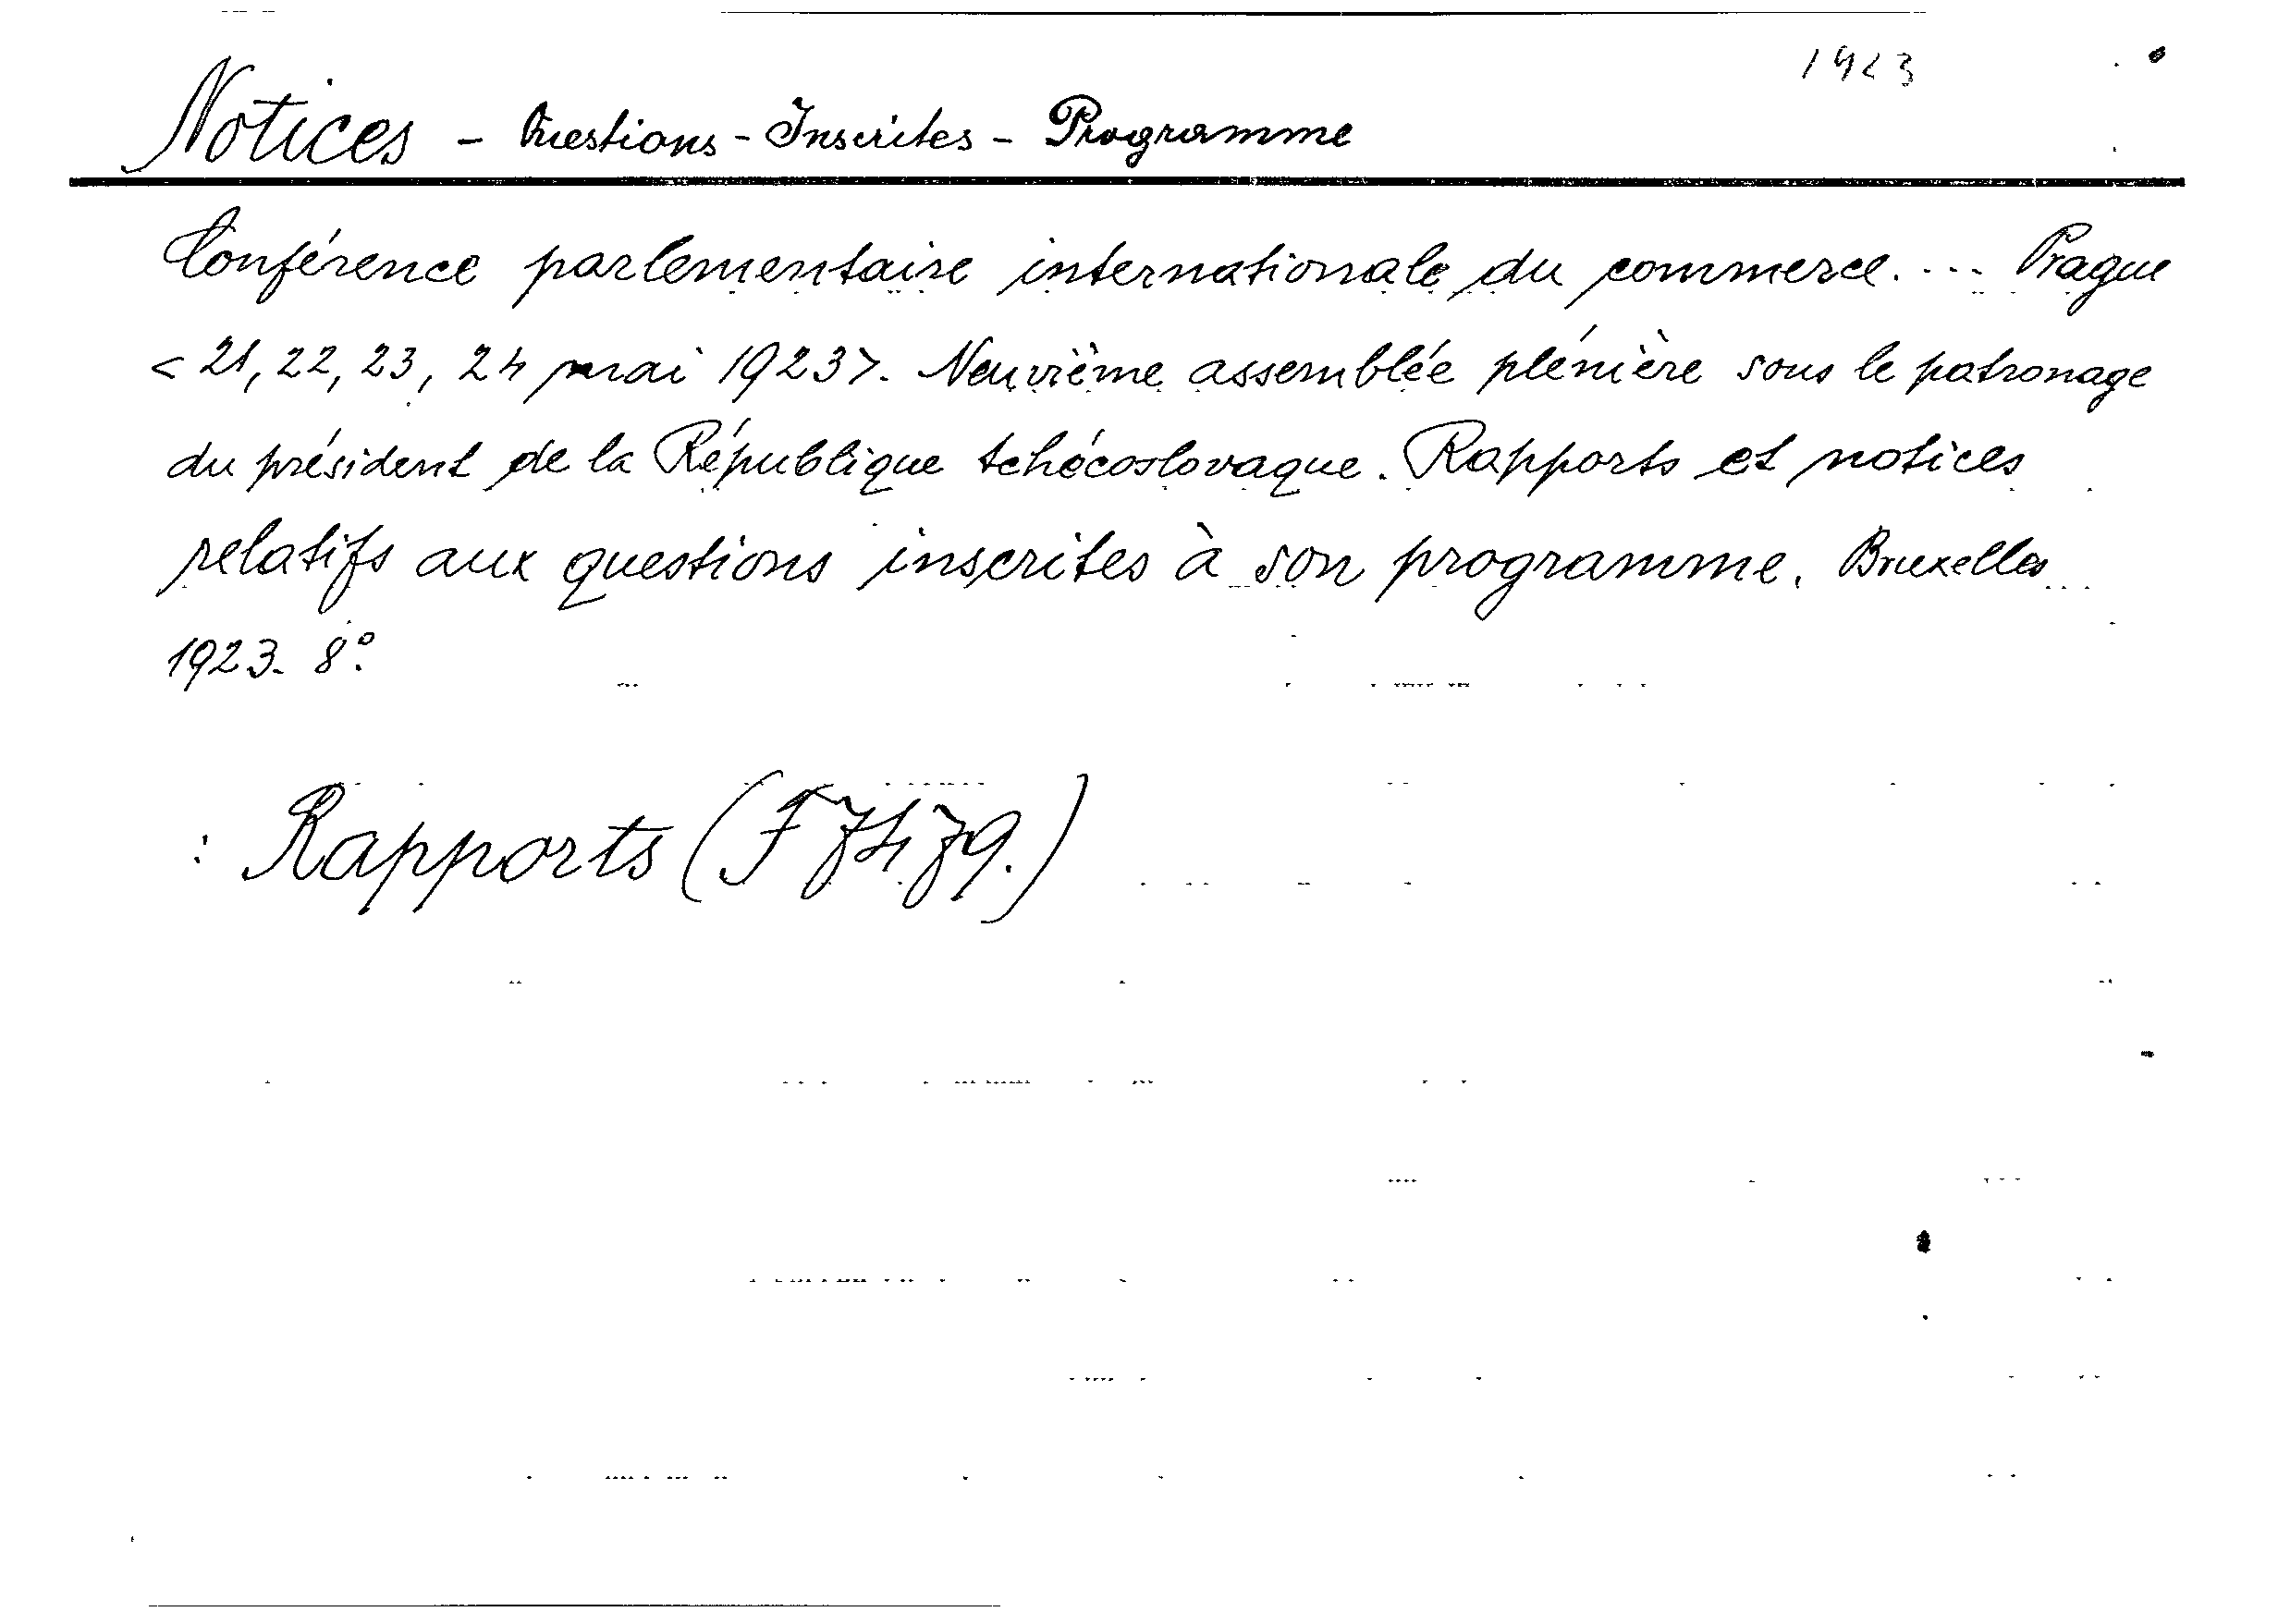 1923
Notices - Questions - Inscrites - Programme
Conférence parlementaire internationale du commerce. ... Prague
< 21, 22, 23, 24 mai 1923>. Neuvième assemblée plénière sous le patronage
du président de la République tchécoslovaque. Rapports et notices
relatifs aux questions inscrites à son programme. Bruxelles
1923. 8°.
: Rapports (F 7479.)